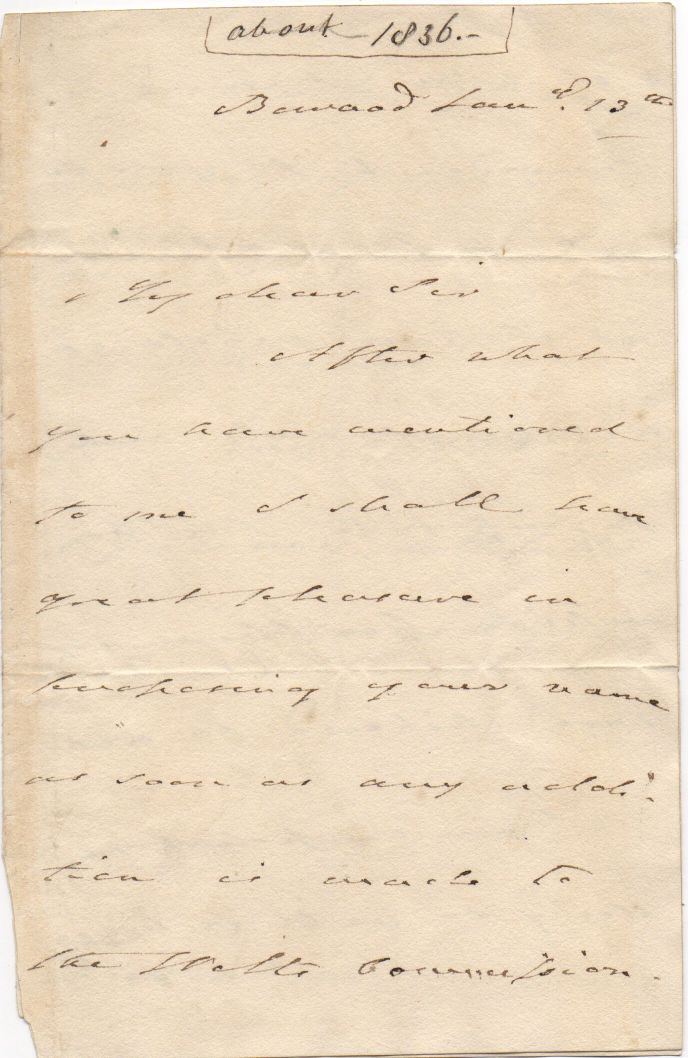 about 1836.-
Bowood Jan^y. 13^th
My dear Sir
After what
you have mentioned
to me I shall have
great pleasure in
proposing your name
as soon as any addi-
tion is made to
the Wilts Commission.